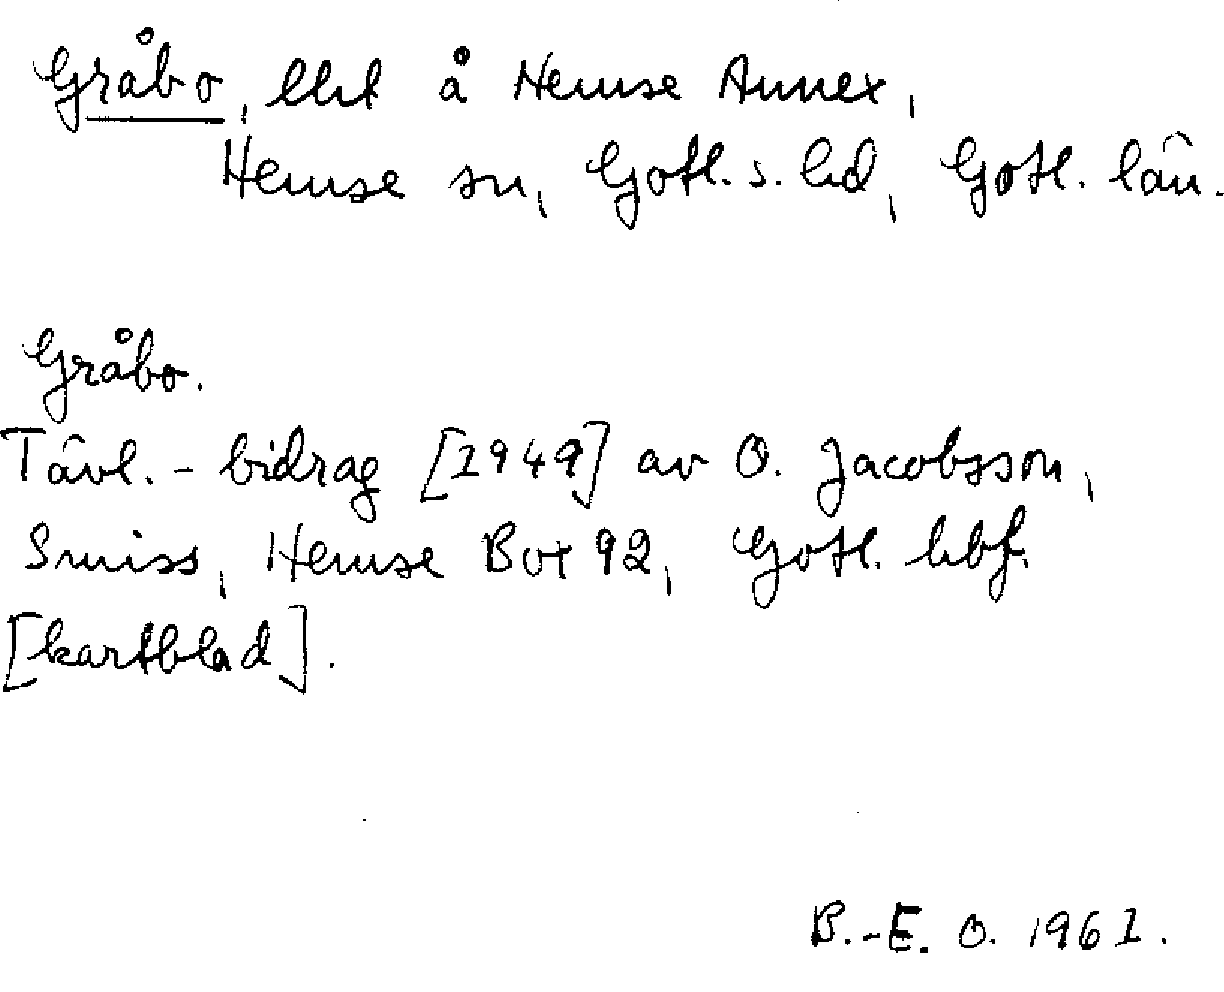 Gråbo, lht å Hemse Annex,
Hemse sn, Gotl. s. hd, Gotl. län.
Gråbo.
Tävl.-bidrag [1949] av O. Jacobsson,
Smiss, Hemse Box 92, Gotl. hbf.
[kartblad].
B.-E. O. 1961.